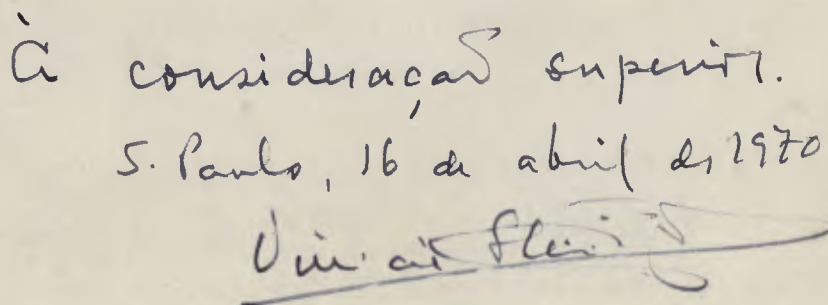 À consideração superior.
S. Paulo, 16 de abril de 1970